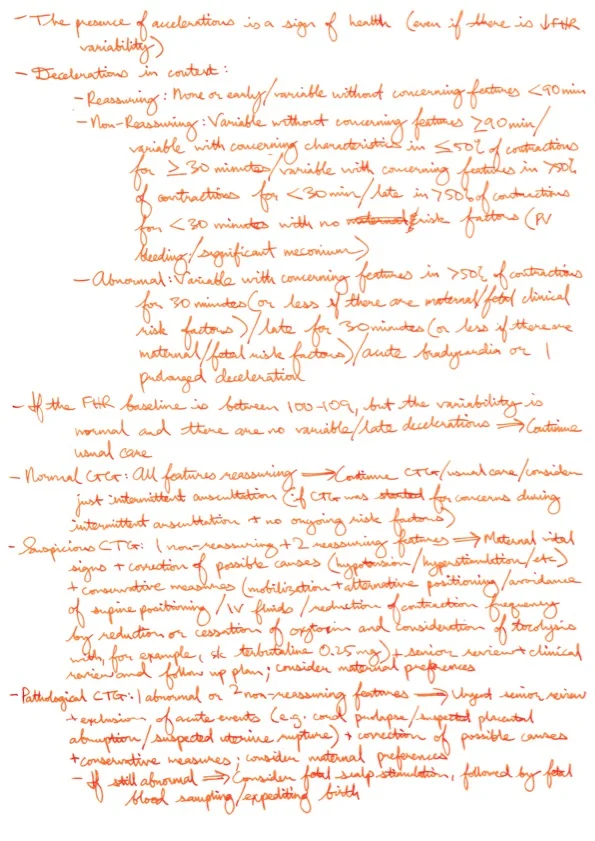 - The presence of accelerations is a sign of health (even if there is ↓FHR
variability)
- Decelerations in context:
- Reassuring: None or early/variable without concerning features <90min
- Non-Reassuring: Variable without concerning features ≥90min/
variable with concerning characteristics in ≤50% of contractions
for ≥30 minutes/variable with concerning features in >50%
of contractions for <30min/late in >50% of contractions
for <30 minutes with no risk factors (PV
bleeding/significant meconium)
- Abnormal: Variable with concerning features in >50% of contractions
for 30 minutes (or less if there are maternal/fetal clinical
risk factors)/late for 30 minutes (or less if there are
maternal/fetal risk factors)/acute bradycardia or 1
prolonged deceleration
- If the FHR baseline is between 100-109, but the variability is
normal and there are no variable/late decelerations ⇒ Continue
usual care
- Normal CTG: All features reassuring ⇒ Continue CTG/usual care/consider
just intermittent auscultation (if CTG was started for concerns during
intermittent auscultation + no ongoing risk factors)
- Suspicious CTG: 1 non-reassuring + 2 reassuring features ⇒ Maternal vital
signs + correction of possible causes (hypotension/hyperstimulation/etc)
+ conservative measures (mobilization + alternative positioning/avoidance
of supine positioning/IV fluids/reduction of contraction frequency
by reduction or cessation of oxytocin and consideration of tocolysis
with, for example, s/c terbutaline 0.25mg) + senior review + clinical
review and follow up plan; consider maternal preferences
- Pathological CTG: 1 abnormal or 2 non-reassuring features ⇒ Urgent senior review
+ exclusion of acute events (e.g. cord prolapse/suspected placental
abruption/suspected uterine rupture) + correction of possible causes
+ conservative measures; consider maternal preferences
- If still abnormal ⇒ Consider fetal scalp stimulation, followed by fetal
blood sampling/expediting birth